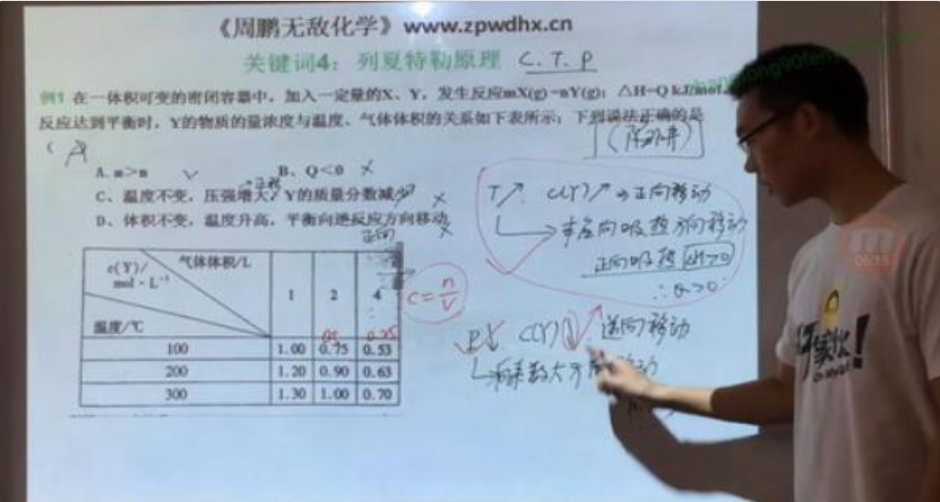 《周鹏无敌化学》www.zpwdhx.cn
关键词4：列夏特勒原理 C.T.P
例1 在一体积可变的密闭容器中，加入一定量的X、Y，发生反应mX(g)=nY(g)；△H=Q kJ/mol.
反应达到平衡时，Y的物质的量浓度与温度、气体体积的关系如下表所示；下列说法正确的是
( A
A. m>n √ B、Q<0 ×
C、温度不变，压强增大，Y的质量分数减少 ×
D、体积不变，温度升高，平衡向逆反应方向移动 ×
正向
c(Y)/ mol·L⁻¹ 气体体积/L 温度/℃ 1 2 4
0.5 0.25
100 1.00 0.75 0.53
200 1.20 0.90 0.63
300 1.30 1.00 0.70
C=n/V
T↗ C(Y)↗ ⇒正向移动
→ 吸热方向移动
正向吸热 ΔH>0
∴Q>0
P↓ C(Y)↓ 逆向移动
系数大